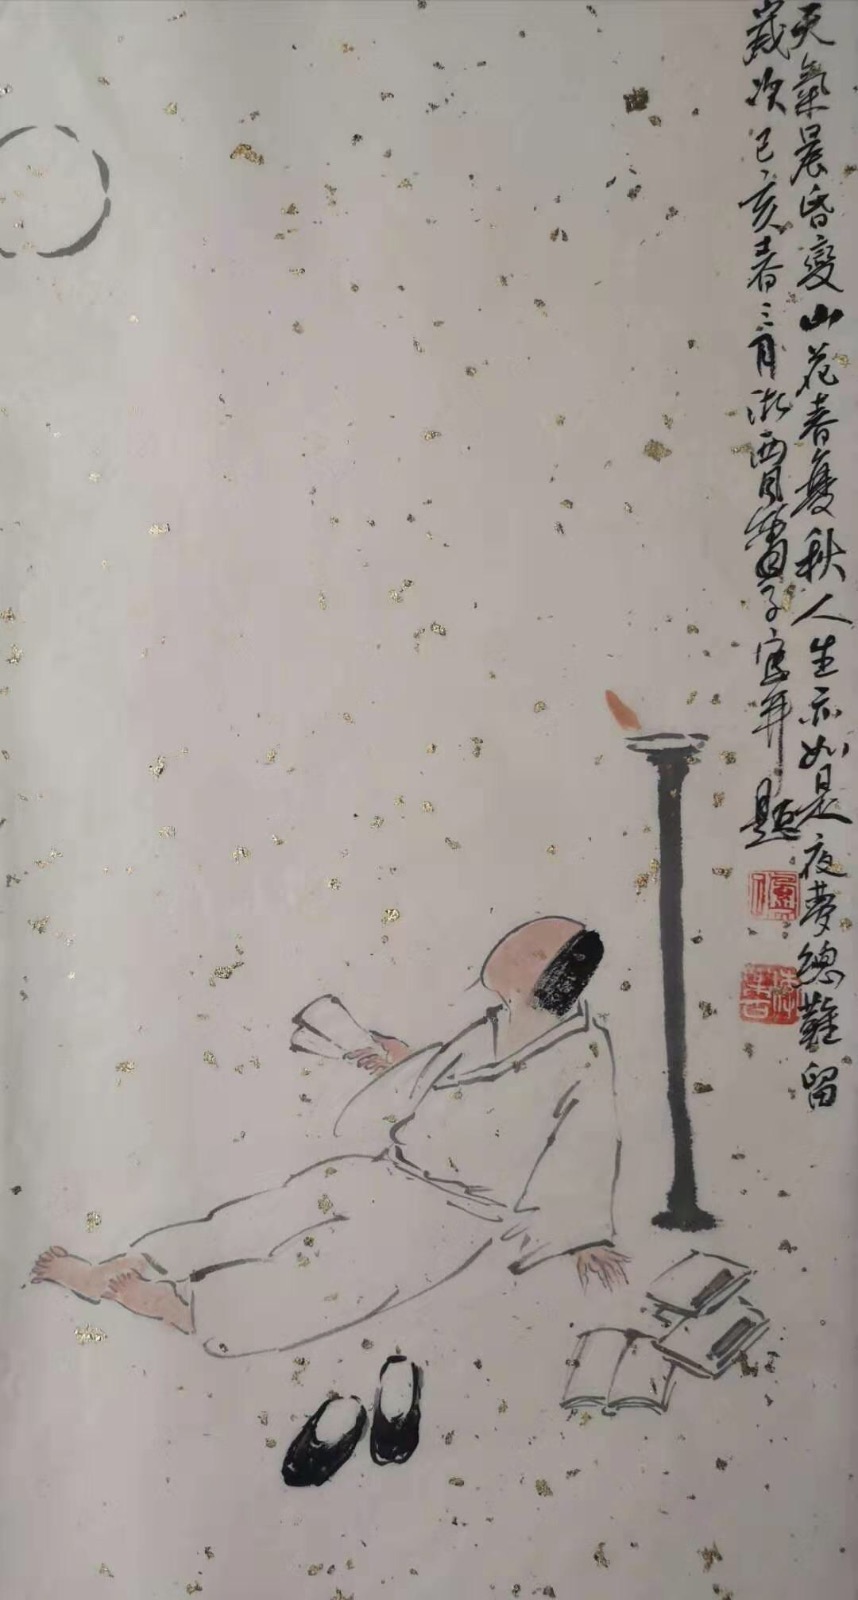 天氣晨昏變山花春夏秋人生亦如是夜夢總難留
歲次己亥春三月浙西
子
題